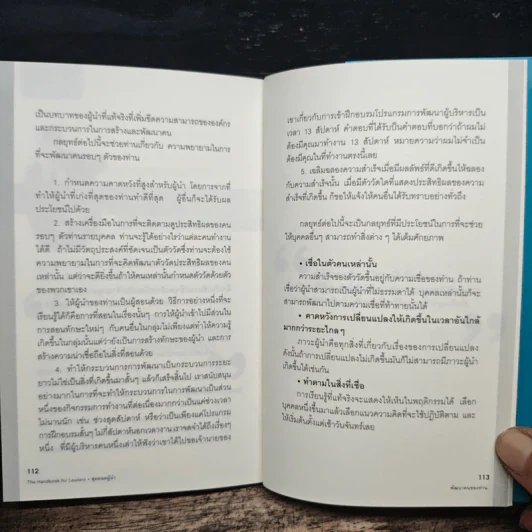 เป็นบทบาทของผู้นำที่แท้จริงที่เพิ่มขีดความสามารถขององค์กร
และกระบวนการในการสร้างและพัฒนาคน
กลยุทธ์ต่อไปนี้จะช่วยท่านเกี่ยวกับ ความพยายามในการ
ที่จะพัฒนาคนรอบๆ ตัวของท่าน
1. กำหนดความคาดหวังที่สูงสำหรับผู้นำ โดยการจากที่
ทำให้ผู้นำที่เก่งที่สุดของท่านทำดีที่สุด ผู้อื่นก็จะได้รับผล
ประโยชน์ไปด้วย
2. สร้างเครื่องมือในการที่จะติดตามดูประสิทธิผลของคน
รอบๆ ตัวท่านรายบุคคล ท่านจะรู้ได้อย่างไรว่าแต่ละคนทำงาน
ได้ดี ถ้าไม่มีวัตถุประสงค์ที่ชัดเจนเป็นตัววัดซึ่งท่านจะต้องใช้
ความพยายามในการที่จะวัดประสิทธิผลของตัวท่านและของคน
เหล่านั้น แต่ว่าจะดียิ่งขึ้นถ้าให้คนเหล่านั้นกำหนดตัววัดด้วยตัว
ของพวกเขาเอง
3. ให้ผู้นำของท่านเป็นผู้สอนด้วย วิธีการอย่างหนึ่งที่จะ
เรียนรู้ได้ดีก็คือการที่สอนในเรื่องนั้นๆ การให้ผู้นำเข้าไปมีส่วนใน
การสอนทักษะใหม่ๆ กับคนอื่นในกลุ่มไม่เพียงแต่ทำให้ความรู้
เกิดขึ้นในกลุ่มนั้นแต่ว่ายังเป็นการสร้างทักษะของผู้นำ และการ
สร้างความน่าเชื่อถือในสิ่งที่สอนด้วย
4. ทำให้กระบวนการการพัฒนาเป็นกระบวนการระยะ
ยาวไม่ใช่เป็นสิ่งที่เกิดขึ้นมาสั้นๆ แล้วก็เสร็จสิ้นไป เราสนับสนุน
อย่างมากในการที่จะทำให้กระบวนการในการพัฒนาเป็นส่วน
หนึ่งของกิจกรรมการทำงานที่ต่อเนื่องมากกว่าเป็นแค่ช่วงเวลา
ไม่นานนัก เช่น ช่วงสุดสัปดาห์ หรือว่าเป็นเพียงแค่โปรแกรม
การฝึกอบรมสั้นๆ ไม่กี่สัปดาห์นอกเวลางานเราจดจำได้ถึงเรื่องๆ
หนึ่ง ที่มีผู้บริหารคนหนึ่งเล่าให้ฟังว่าเขาได้ไปขอเจ้านายของ
112
The Handbook for Leaders • สุดยอดผู้นำ
เขาเกี่ยวกับการเข้าฝึกอบรมโปรแกรมการพัฒนาผู้บริหารเป็น
เวลา 13 สัปดาห์ คำตอบที่ได้รับเป็นคำตอบที่บอกว่าถ้าผมไม่
ต้องมีคุณมาทำงาน 13 สัปดาห์ หมายความว่าผมไม่จำเป็น
ต้องมีคุณในที่ทำงานตรงนี้เลย
5. เฉลิมฉลองความสำเร็จเมื่อมีผลลัพธ์ที่ดีเกิดขึ้นให้ฉลอง
กับความสำเร็จนั้น เมื่อมีตัววัดใดที่แสดงประสิทธิผลของความ
สำเร็จที่เกิดขึ้น ก็ขอให้แจ้งให้คนอื่นได้รับทราบอย่างทั่วถึง
กลยุทธ์ต่อไปนี้จะเป็นกลยุทธ์ที่มีประโยชน์ในการที่จะช่วย
ให้บุคคลอื่นๆ สามารถทำสิ่งต่าง ๆ ได้เต็มศักยภาพ
• เชื่อในตัวคนเหล่านั้น
ความสำเร็จของตัววัดขึ้นอยู่กับความเชื่อของท่าน ถ้าท่าน
เชื่อว่าผู้นำสามารถเป็นผู้นำที่ไม่ธรรมดาได้ บุคคลเหล่านั้นก็จะ
สามารถพัฒนาไปตามความเชื่อที่ท้าทายนั้นได้
• คาดหวังการเปลี่ยนแปลงให้เกิดขึ้นในเวลาอันใกล้
มากกว่าระยะไกลๆ
ภาวะผู้นำคือทุกสิ่งที่เกี่ยวกับเรื่องของการเปลี่ยนแปลง
ดังนั้นถ้าการเปลี่ยนแปลงไม่เกิดขึ้นมันก็ไม่สามารถมีภาวะผู้นำ
เกิดขึ้นได้เช่นกัน
• ทำตามในสิ่งที่เชื่อ
การเรียนรู้ที่แท้จริงจะแสดงให้เห็นในพฤติกรรมได้ เลือก
บุคคลหนึ่งขึ้นมาแล้วเลือกแนวความคิดที่จะใช้ปฏิบัติตาม และ
ให้เริ่มต้นตั้งแต่เช้าวันจันทร์เลย
113
พัฒนาคนของท่าน